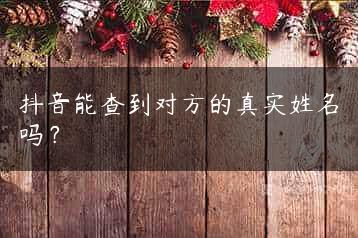 抖音能查到对方的真实姓名
吗？